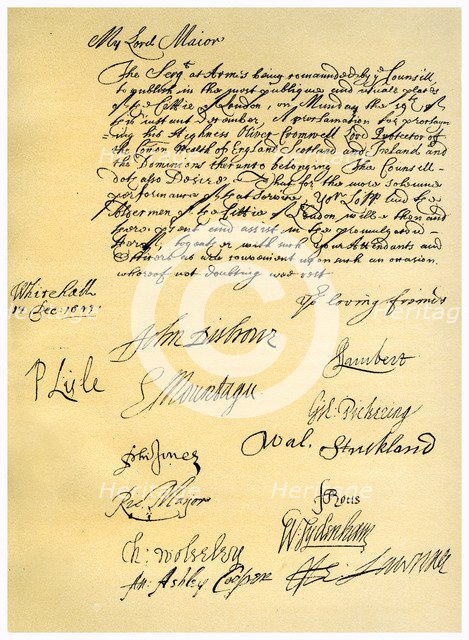 My Lord Maior
The Serg.t at Armes being comaunded by ye Counsill
to publish in the most publique and usuale places
of the Cittie of London, on Munday the 19th of
this instant December, A proclamation for proclaym
ing his Highness Oliver Cromwell Lord Protector of
the Comon wealth of England Scotland and Ireland and
the Dominions thereto belonging The Counsill
doe also Desire That for the more solemne
performance of that Service, Yor Lopp and the
Aldermen of the Cittie of London will be then and
there and assist in the
together with such Your Attendants and
Officers as are convenient upon such an occasion.
whereof not doubting wee rest
Yor loving friends
Whitehall
Dec. 1653
John Disbrow
J Lambert
P Lisle
E Mountagu
Gil. Pickering
Wal. Strickland
John Jones
Ric. Major
J Rous
W Sydenham
Ch: Wolseley
An: Ashley Cooper
He: Lawrence
Heritage
Heritage
Heritage
Heritage